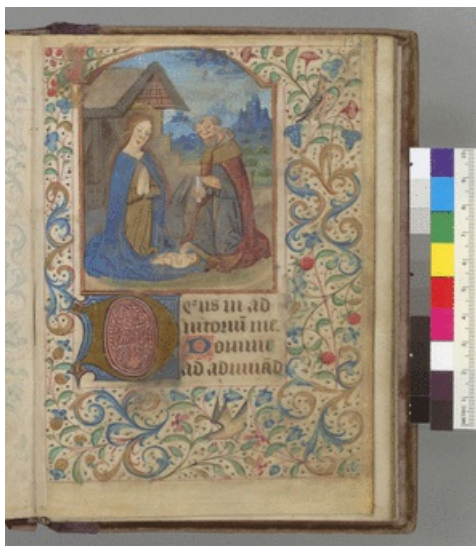 Deus in ad
iutoriū me.
Domine
ad adiuuād